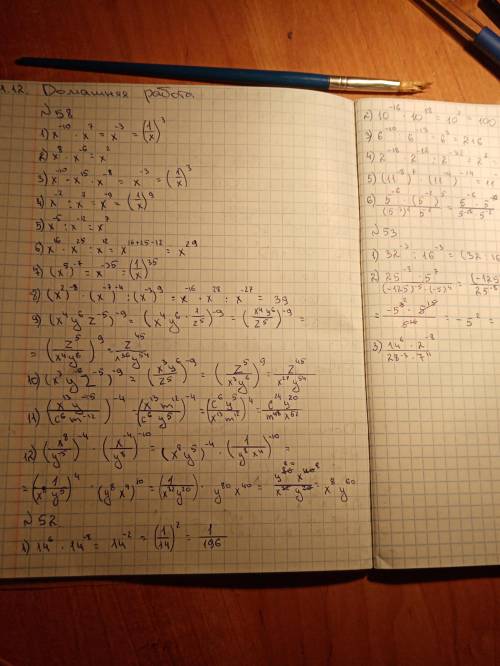 1.12. Домашняя работа
№58
1) x⁻¹⁰ · x⁷ = x⁻³ = (1/x)³
2) x⁸ · x⁻⁶ = x²
3) x⁻¹⁰ · x¹⁵ · x⁻⁸ = x⁻³ = (1/x)³
4) x⁻² : x⁷ = x⁻⁹ = (1/x)⁹
5) x⁻⁵ : x⁻¹² = x⁷
6) x¹⁶ · x²⁵ : x¹² = x¹⁶⁺²⁵⁻¹² = x²⁹
7) (x⁵)⁻⁷ = x⁻³⁵ = (1/x)³⁵
8) (x²)⁻⁸ · (x⁻⁷)⁻⁴ : (x⁻³)⁹ = x⁻¹⁶ · x²⁸ : x⁻²⁷ = 39
9) (x⁴y⁶z⁻⁵)⁻⁹ = (x⁴y⁶ · 1/z⁵)⁻⁹ = (x⁴y⁶/z⁵)⁻⁹ =
= (z⁵/(x⁴y⁶))⁹ = z⁴⁵/(x³⁶y⁵⁴)
10) (x³y⁶z⁻⁵)⁻⁹ = (x³y⁶/z⁵)⁻⁹ = (z⁵/(x³y⁶))⁹ = z⁴⁵/(x²⁷y⁵⁴)
11) (x¹³y⁻⁵/(c⁶m⁻¹²))⁻⁴ = (x¹³m¹²/(c⁶y⁵))⁻⁴ = (c⁶y⁵/(x¹³m¹²))⁴ = c²⁴y²⁰/(m⁴⁸x⁵²)
12) (x⁸/y⁻⁵)⁻⁴ · (x⁻⁴/y⁸)⁻¹⁰ = (x⁸y⁵)⁻⁴ · (1/(y⁸x⁴))⁻¹⁰ =
= (1/(x⁸y⁵))⁴ · (y⁸x⁴)¹⁰ = (1/(x³²y²⁰)) · y⁸⁰x⁴⁰ = y⁸⁰x⁴⁰/(x³²y²⁰) = x⁸y⁶⁰
№52
1) 14⁶ · 14⁻⁸ = 14⁻² = (1/14)² = 1/196
2) 10⁻¹⁶ · 10¹⁸ = 10² = 100
3) 6⁻¹⁰ 6⁻¹³ 6³ = 216
4) 2⁻¹⁸
5) (11⁻⁸)⁷
6)
№53
1) 32⁻³ : 16⁻³ = (32
2) 25⁻³ · 5⁷/((-125)⁻⁵·(-5)⁴ =
= -5²
3) 14⁶ · 2⁻⁸/(28⁻³ · 7¹¹)